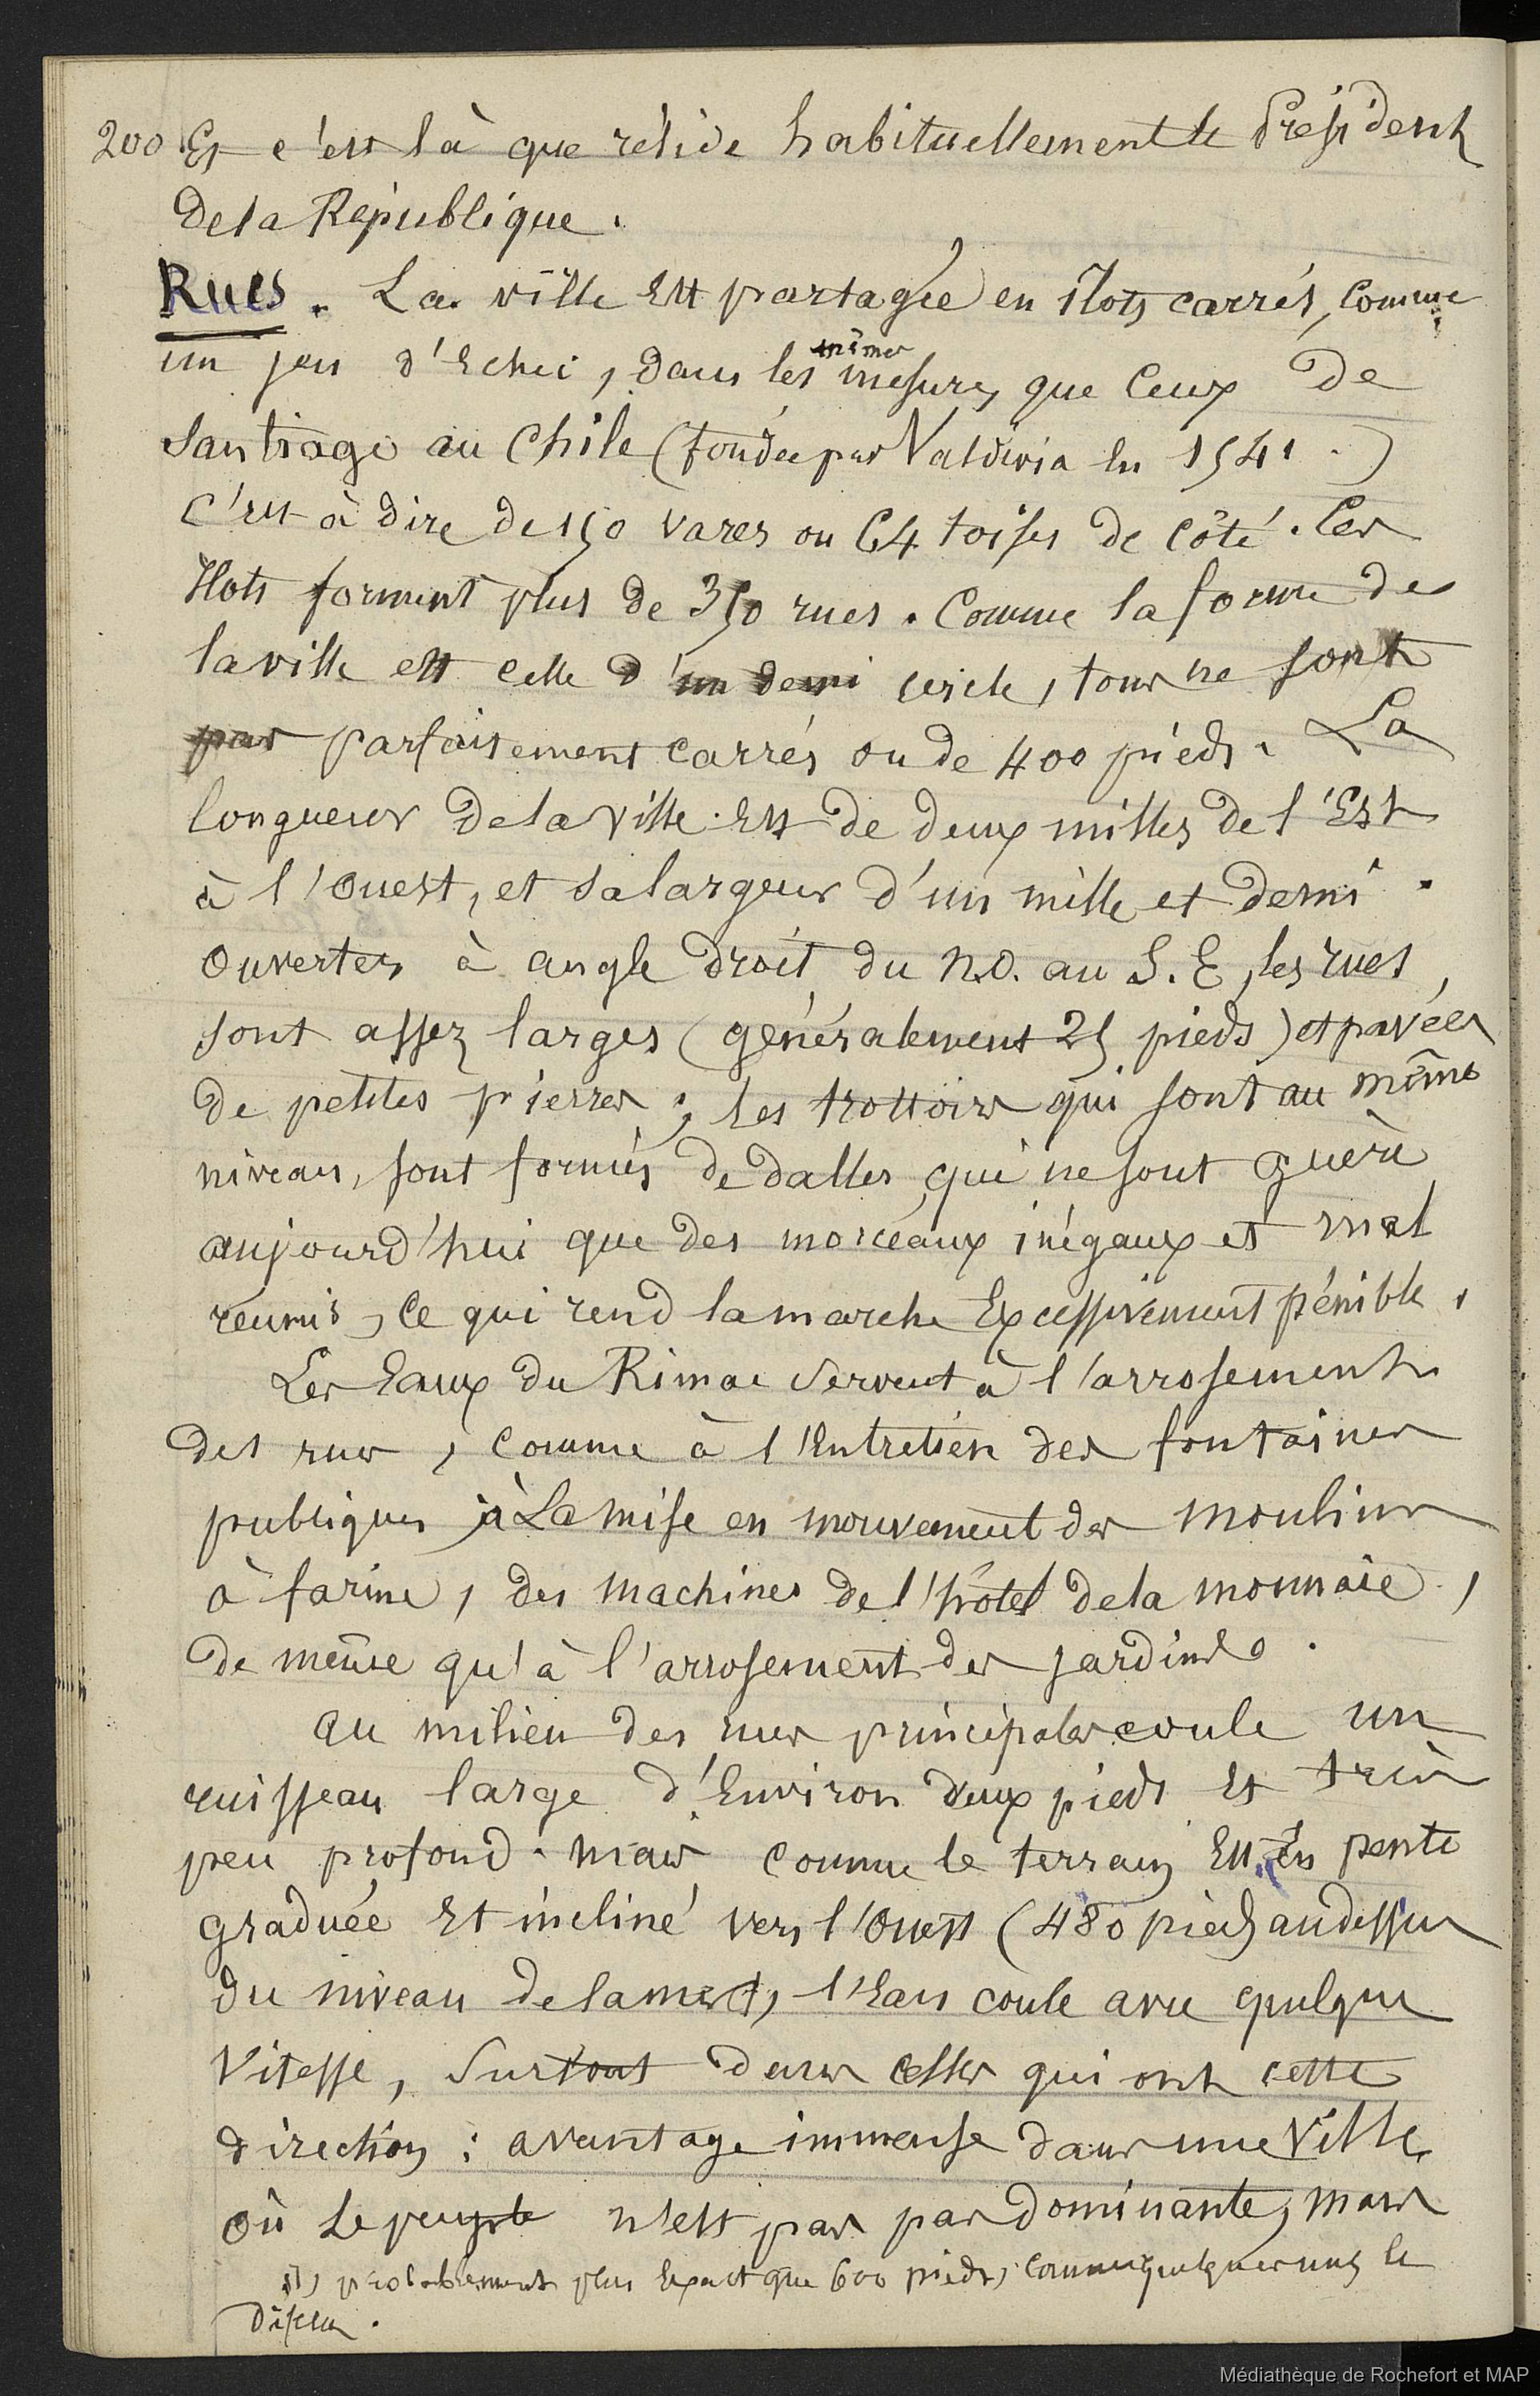 200 Et c'est là que réside habituellement le Président
de la République.
Rues. La ville est partagée en îlots carrés, comme
un jeu d'Echec, dans les mêmes mesures que ceux de
Santiago au Chile (fondée par Valdivia en 1541.)
C'est à dire de 150 vares ou 64 toises de côté. Ces
Ilots forment plus de 350 rues. Comme la forme de
la ville est celle d'un demi cercle, tous ne sont
pas parfaitement carrés ou de 400 pieds. La
longueur de la ville est de deux milles de l'Est
à l'Ouest, et sa largeur d'un mille et demi.
Ouvertes à angle droit du N.O. au S.E, les rues
sont assez larges (généralement 25 pieds) et pavées
de petites pierres; les trottoirs qui sont au même
niveau, sont formés de dalles qui ne sont guère
aujourd'hui que des morceaux inégaux et mal
réunis, ce qui rend la marche Excessivement pénible.
Les Eaux du Rimac servent à l'arrosement
des rues, comme à l'Entretien des fontaines
publiques, à La mise en mouvement des moulins
à farine, des machines de l'hôtel de la monnaie,
de même qu'à l'arrosement des jardins.
Au milieu des rues principales coule un
ruisseau large d'Environ deux pieds Et très
peu profond. Mais comme le terrain Est En pente
graduée Et incliné vers l'Ouest (480 pieds au dessus
du niveau de la mer (1), l'Eau coule avec quelque
vitesse, Surtout dans celles qui ont cette
direction: avantage immense dans une Ville
où Le peuple n'est pas par dominante, mais
(1) probablement plus Exact que 600 pieds, comme quelques uns le
disent.